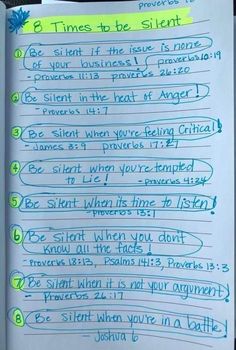 proverbs 18
8 Times to be Silent
① Be Silent if the issue is none
of your business! / proverbs 10:19
- proverbs 11:13 proverbs 26:20
② Be Silent in the heat of Anger!
- Proverbs 14:7
③ Be Silent when you're feeling Critical!
- James 3:9 proverbs 17:27
④ Be Silent when you're tempted
to Lie! - Proverbs 4:24
⑤ Be Silent when its time to listen!
- Proverbs 13:1
⑥ Be Silent when you don't
know all the facts!
- Proverbs 18:13, Psalms 141:3, Proverbs 13:3
⑦ Be Silent when it is not your argument!
- Proverbs 26:17
⑧ Be Silent when you're in a battle!
- Joshua 6